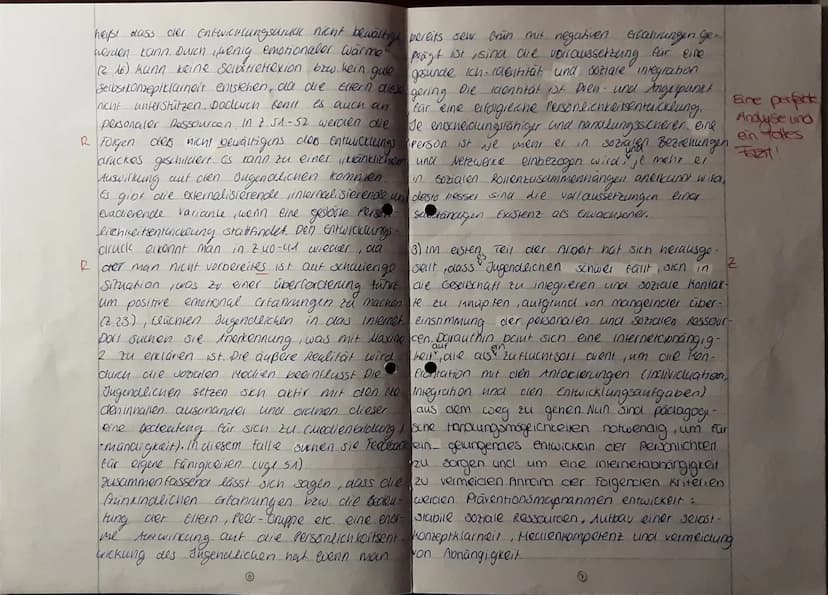 heißt dass der Entwicklungsdruck nicht bewältigt
werden kann. Durch „wenig emotionaler Wärme"
(Z 16) kann keine Selbstreflexion bzw. kein gute
Selbstkonzeptklarheit entstehen, da die Eltern diese
nicht unterstützen. Dadurch fehlt es auch an
personaler Ressourcen. In Z. 51-52 werden die
R
Folgen des nicht bewältigens des Entwicklungs
druckes geschildert. Es kann zu einer
Auswirkung auf den Jugendlichen kommen.
Es gibt die externalisierende, internalisierende und
evadierende Variante, wenn eine gestörte Persön-
lichkeitsentwicklung stattfindet. Den Entwicklungs-
druck erkennt man in Z 40-41 wieder, da
R
der man nicht vorbereites ist auf schwierige
Situation, was zu einer Überforderung führt.
Um positive emotional Erfahrungen zu machen
(Z. 23), flüchten Jugendlichen in das Internet.
Dort suchen sie Anerkennung, was mit Maxime
2 zu erklären ist. Die äußere Realität wird
durch die sozialen Medien beeinflusst. Die
Jugendlichen setzen sich aktiv mit den Me
dieninhalten auseinander und ordnen dieser
eine Bedeutung für sich zu (Medienbildung /
-mündigkeit). In diesem Falle suchen sie Feedback
für eigene Fähigkeiten (vgl. S1)
Zusammenfassend lässt sich sagen, dass die
frühkindlichen Erfahrungen bzw die Bedeu-
tung der Eltern, Peer-Gruppe etc. eine enor-
me Auswirkung auf die Persönlichkeitsent-
wicklung des Jugendlichen hat. Wenn man
6
bereits sehr früh mit negativen Erfahrungen ge-
prägt ist, sind die Voraussetzung für eine
gesunde Ich-Identität und soziale Integration
gering. Die Identität ist Dreh- und Angelpunkt
für eine erfolgreiche Persönlichkeitsentwicklung.
Je entscheidungsfähiger und handlungssicherer eine
Person ist, je mehr er in sozialen Beziehungen
und Netzwerke einbezogen wird, und je mehr er
in sozialen Rollenzusammenhängen anerkannt wird,
desto besser sind die Voraussetzungen einer
selbständigen Existenz als Erwachsener.
Eine perfekte
Analyse und
ein tolles
Fazit!
3) Im ersten Teil der Arbeit hat sich herausge-
stellt, dass es Jugendlichen schwer fällt, sich in
Z
die Gesellschaft zu integrieren und soziale Kontak-
te zu knüpfen, aufgrund von mangelnder Über-
einstimmung der personalen und sozialen Ressour-
cen. Daraufhin baut sich eine Internetabhängig-
keit auf, die als ein Zufluchtsort dient, um die Kon-
frontation mit den Anforderungen (Individuation,
Integration und den Entwicklungsaufgaben)
aus dem Weg zu gehen. Nun sind pädagogi-
sche Handlungsmöglichkeiten notwendig, um für
ein gelungendes Entwickeln der Persönlichkeit
zu sorgen und um eine Internetabhängigkeit
zu vermeiden. Anhand der folgenden Kriterien
werden Präventionsmaßnahmen entwickelt:
stabile soziale Ressourcen, Aufbau einer Selbst-
konzeptklarheit, Medienkompetenz und Vermeidung
von Abhängigkeit
7